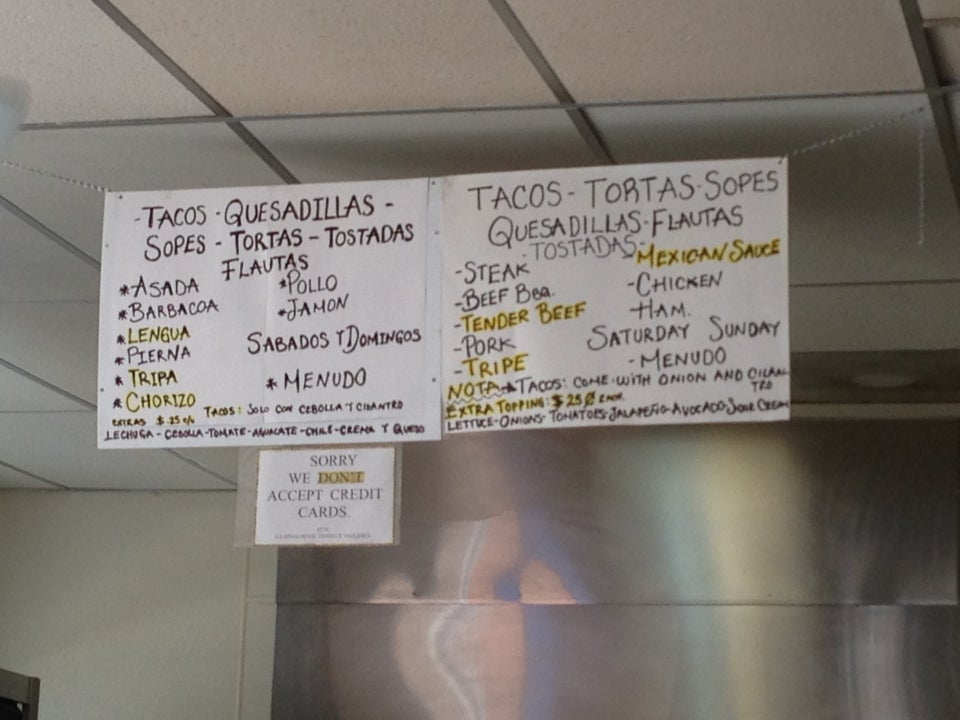 -TACOS-QUESADILLAS-
SOPES-TORTAS-TOSTADAS
FLAUTAS
*ASADA
*BARBACOA
*LENGUA
*PIERNA
*TRIPA
*CHORIZO
*POLLO
*JAMON
SABADOS Y DOMINGOS
*MENUDO
TACOS: SOLO CON CEBOLLA Y CILANTRO
EXTRAS $.25 c/
LECHUGA-CEBOLLA-TOMATE-AGUACATE-CHILE-CREMA Y QUESO
TACOS-TORTAS-SOPES
QUESADILLAS-FLAUTAS
-TOSTADAS-
-STEAK
-BEEF BBQ.
-TENDER BEEF
-PORK
-TRIPE
MEXICAN SAUCE
-CHICKEN
-HAM.
SATURDAY SUNDAY
-MENUDO
NOTA-*TACOS: COME-WITH ONION AND CILAN
TRO
EXTRA TOPPING: $.25¢ EACH.
LETTUCE-ONIONS-TOMATOES-JALAPEÑO-AVOCADO-SOUR CREAM
SORRY
WE DON'T
ACCEPT CREDIT
CARDS.